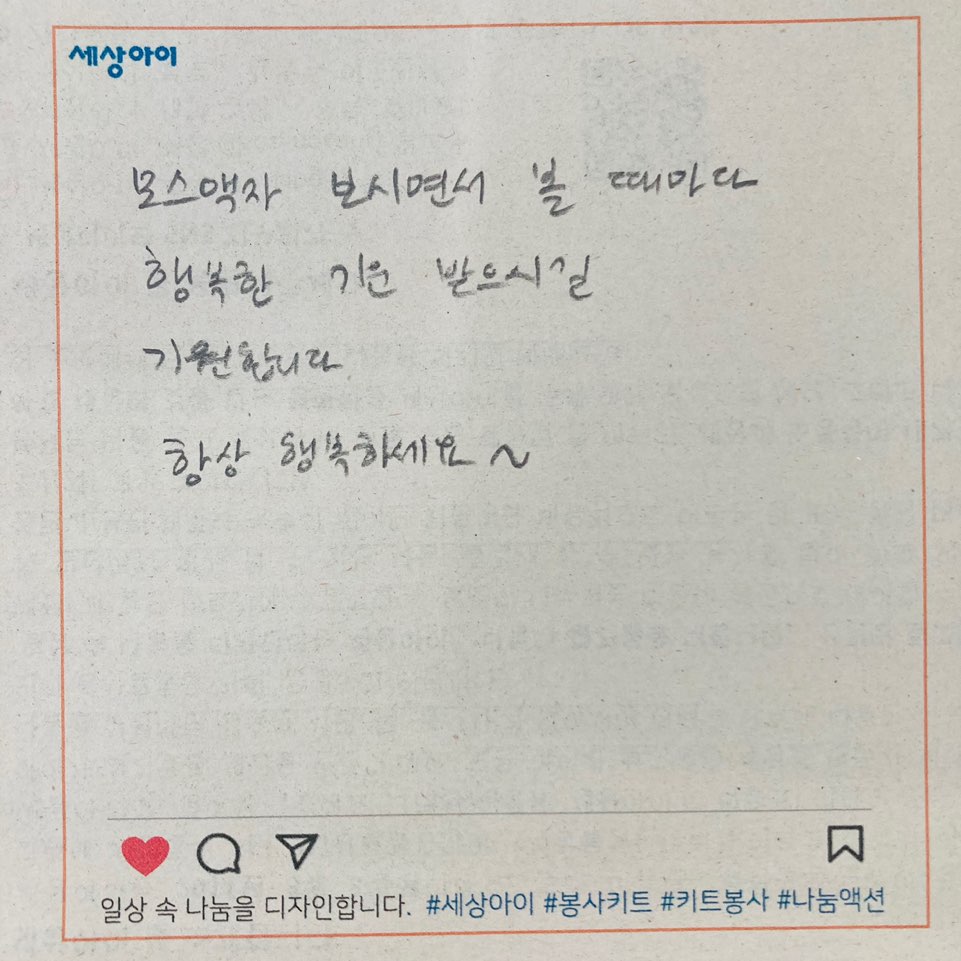 세상아이
모스액자 보시면서 볼 때마다
행복한 기운 받으시길
기원합니다
항상 행복하세요~
일상 속 나눔을 디자인합니다. #세상아이 #봉사키트 #키트봉사 #나눔액션